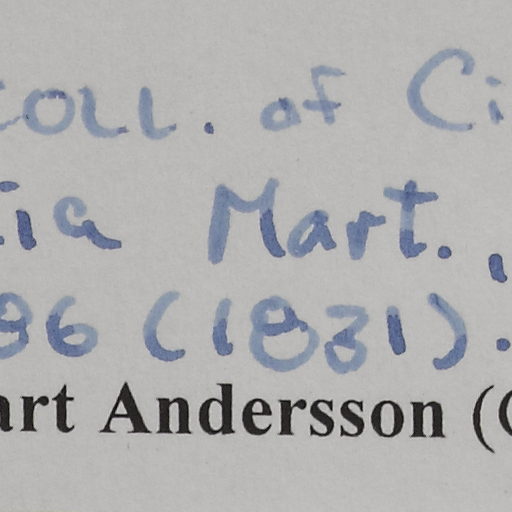 coll. of Ci
tia Mart.,
86 (1831).
art Andersson (